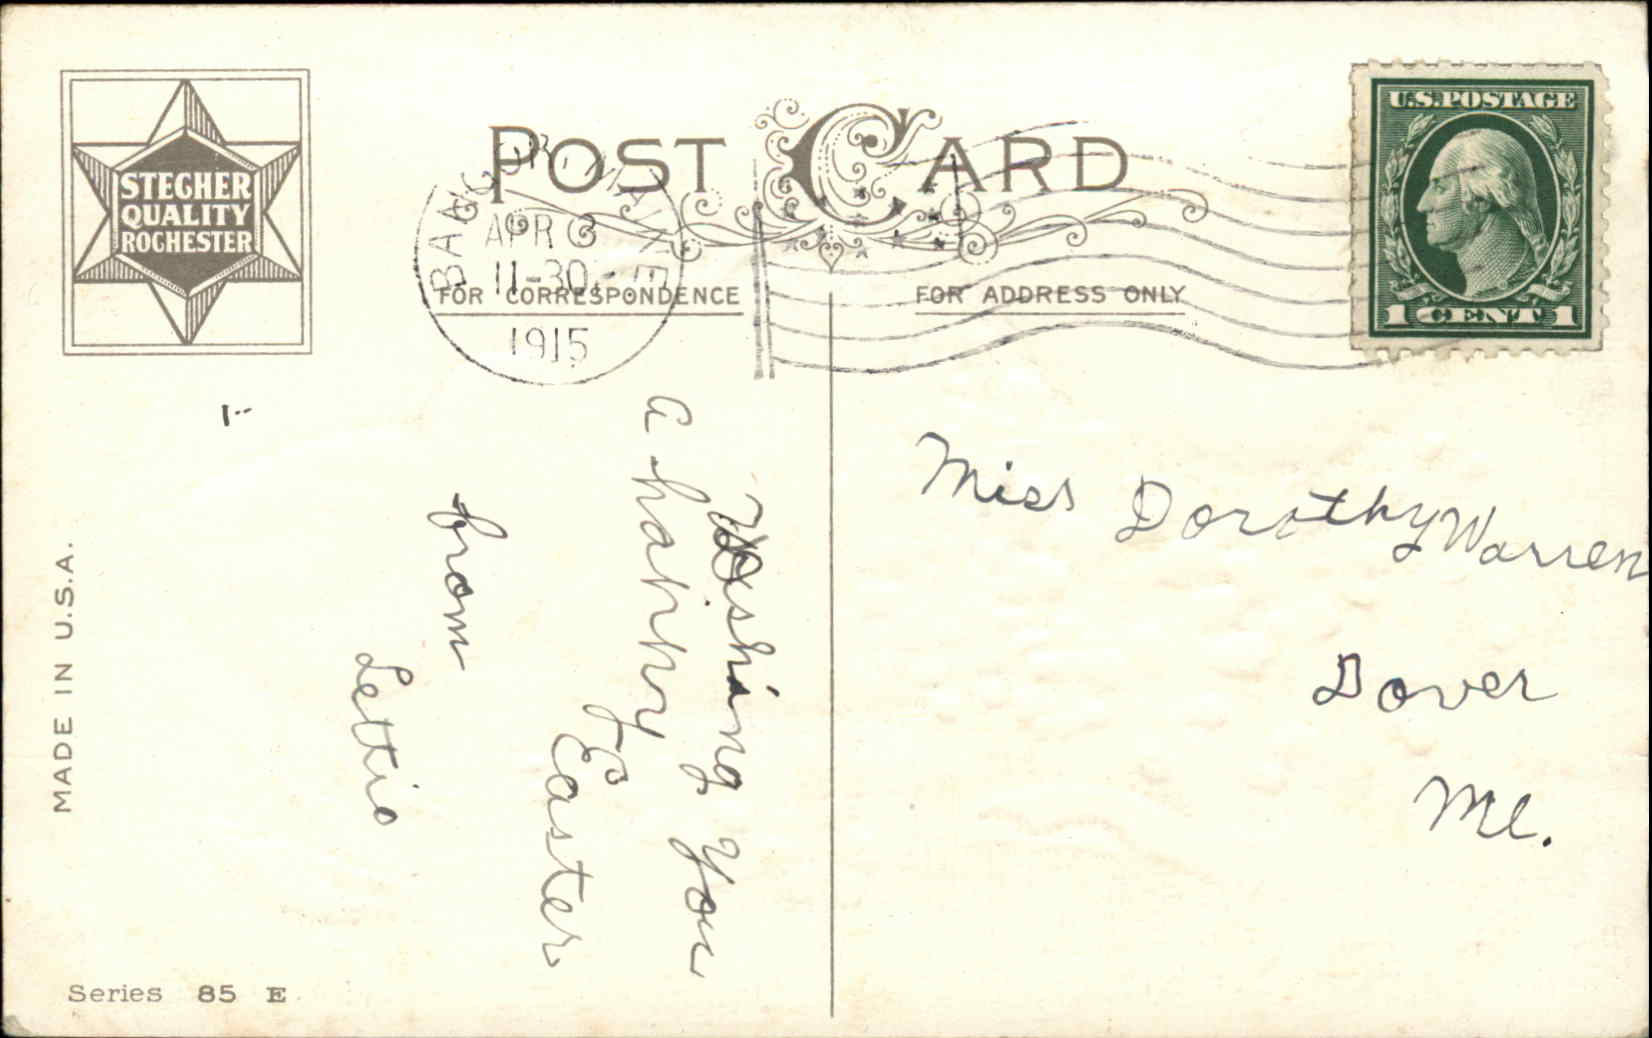 STEGHER
QUALITY
ROCHESTER
POST CARD
BANGOR, MAINE
APR 3
11-30
1915
U.S. POSTAGE
1 CENT 1
FOR CORRESPONDENCE
FOR ADDRESS ONLY
Wishing you
a happy
Easter
from
Lettie
Miss Dorothy Warren
Dover
Me.
MADE IN U.S.A.
Series 85 E